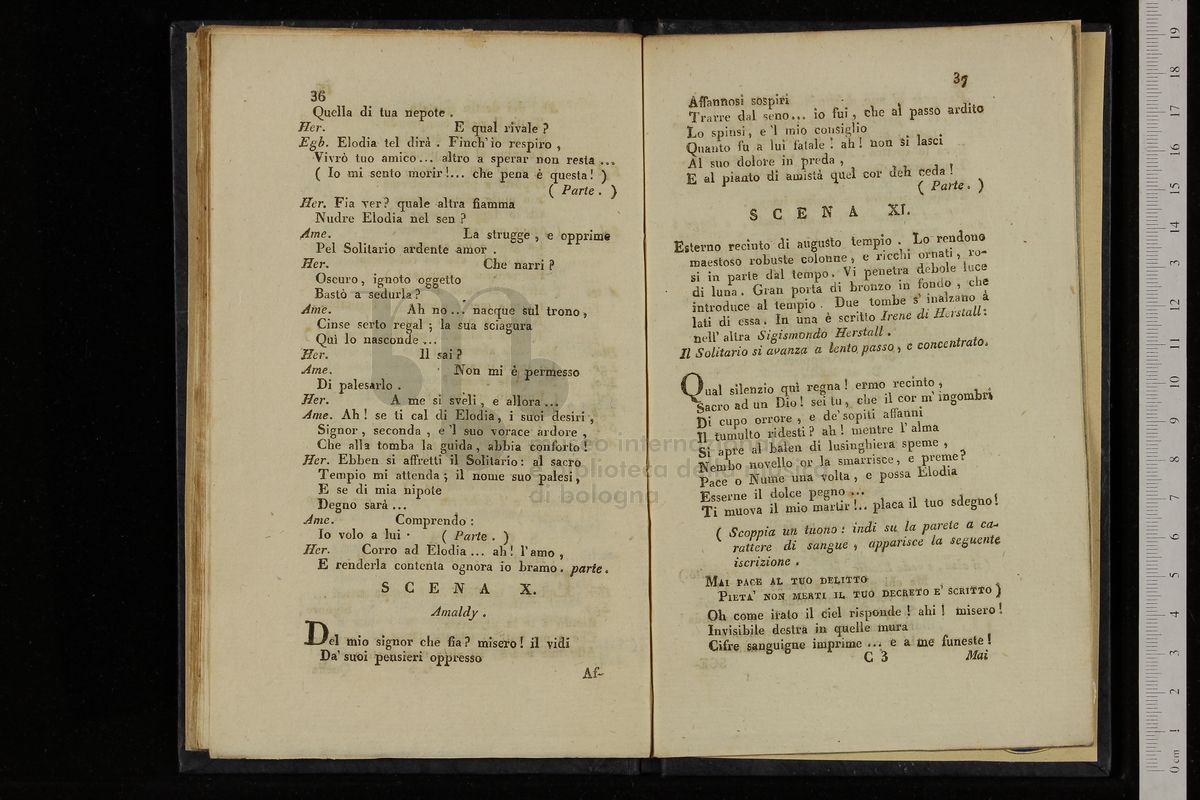 36
Quella di tua nepote .
Her. E qual rivale ?
Egb. Elodia tel dirà . Finch' io respiro ,
Vivrò tuo amico... altro a sperar non resta ...
( Io mi sento morir!... che pena è questa! )
( Parte . )
Her. Fia ver? quale altra fiamma
Nudre Elodia nel sen ?
Ame. La strugge , e opprime
Pel Solitario ardente amor .
Her. Che narri ?
Oscuro, ignoto oggetto
Bastò a sedurla ?
Ame. Ah no... nacque sul trono ,
Cinse serto regal ; la sua sciagura
Quì lo nasconde ...
Her. Il sai ?
Ame. Non mi è permesso
Di palesarlo .
Her. A me si sveli , e allora ...
Ame. Ah ! se ti cal di Elodia , i suoi desiri ,
Signor , seconda , e 'l suo vorace ardore ,
Che alla tomba la guida , abbia conforto !
Her. Ebben si affretti il Solitario: al sacro
Tempio mi attenda ; il nome suo palesi ,
E se di mia nipote
Degno sarà ...
Ame. Comprendo :
Io volo a lui . ( Parte . )
Her. Corro ad Elodia ... ah! l'amo ,
E renderla contenta ognora io bramo. parte.
SCENA X.
Amaldy .
Del mio signor che fia ? misero ! il vidi
Da' suoi pensieri oppresso
Af-
37
Affannosi sospiri
Trarre dal seno... io fui , che al passo ardito
Lo spinsi, e 'l mio consiglio
Quanto fu a lui fatale ! ah ! non si lasci
Al suo dolore in preda ,
E al pianto di amistà quel cor deh ceda !
( Parte. )
SCENA XI.
Esterno recinto di augusto tempio . Lo rendono
maestoso robuste colonne , e ricchi ornati , ro-
si in parte dal tempo. Vi penetra debole luce
di luna. Gran porta di bronzo in fondo , che
introduce al tempio . Due tombe s' inalzano a
lati di essa. In una è scritto Irene di Herstall:
nell' altra Sigismondo Herstall .
Il Solitario si avanza a lento passo , e concentrato.
Qual silenzio quì regna ! ermo recinto ,
Sacro ad un Dio! sei tu , che il cor m' ingombri
Di cupo orrore , e de' sopiti affanni
Il tumulto ridesti ? ah ! mentre l' alma
Si apre al balen di lusinghiera speme ,
Nembo novello or la smarrisce , e preme?
Pace o Nume una volta , e possa Elodia
Esserne il dolce pegno ...
Ti muova il mio martir !.. placa il tuo sdegno!
( Scoppia un tuono : indi su la parete a ca-
rattere di sangue , apparisce la seguente
iscrizione .
MAI PACE AL TUO DELITTO
PIETA' NON MERTI IL TUO DECRETO E' SCRITTO )
Oh come irato il ciel risponde ! ahi ! misero!
Invisibile destra in quelle mura
Cifre sanguigne imprime ... e a me funeste !
C 3 Mai
museo internazionale
e biblioteca della musica
di bologna
0 cm 1 2 3 4 5 6 7 8 9 10 11 12 13 14 15 16 17 18 19